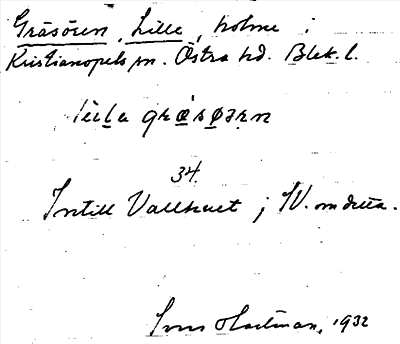 Gräsören, Lille, holme i
Kristianopels sn. Östra hd. Blek. l.
lilla gräsörən
34.
Intill Vallhuet; SV. om detta.
Sven Hartman, 1932